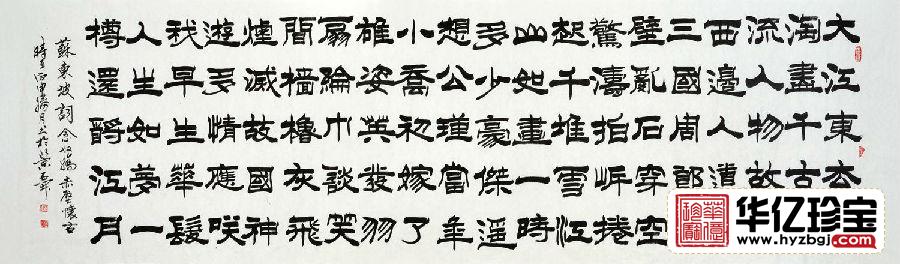 大江東去
淘盡千古
流人物故
西邊人道
三國周郎
壁亂石穿空
驚濤拍岸捲
起千堆雪江
山如畫一時
多少豪傑遥
想公瑾當年
小喬初嫁了
雄姿英發羽
扇綸巾談笑
間檣櫓灰飛
煙滅故國神
遊多情應咲
我早生華髮
人生如夢一
樽還酹江月
蘇東坡詞念奴嬌赤壁懷古
华亿珍宝
www.hyzbgj.com